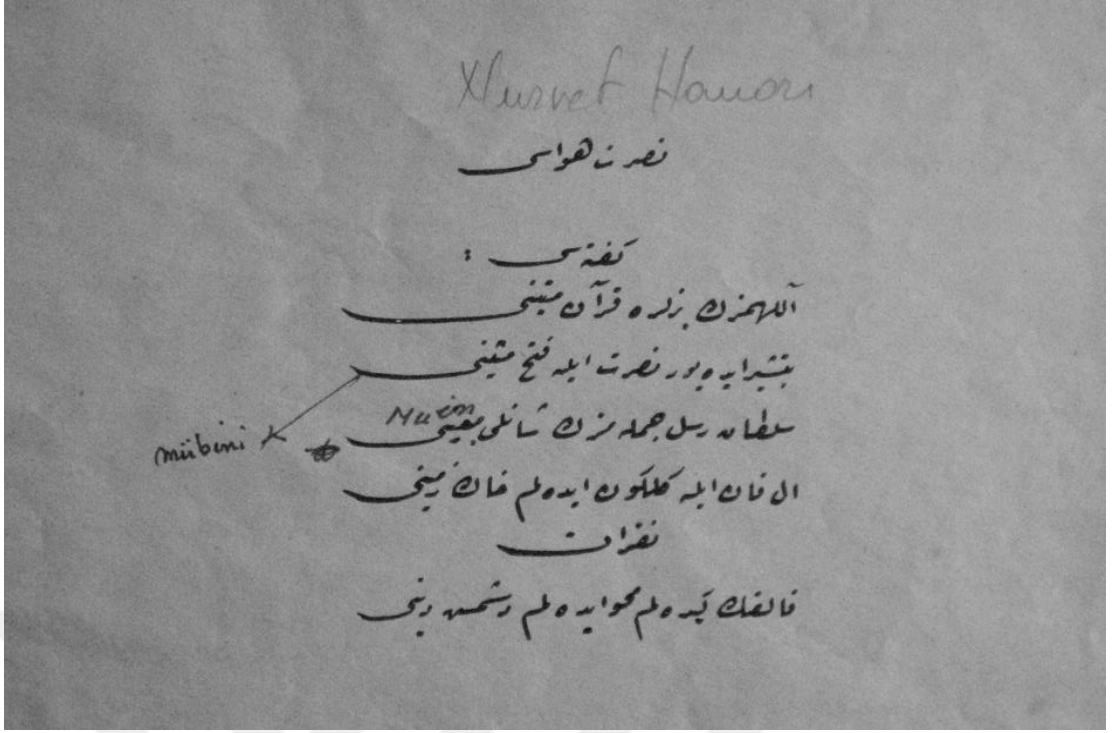 Nusret Havası
نصرت هواسی
كفته سی :
اللهمزك بزلره قرآن متینی
تبشیر ایده یور نصرت ایله فتح مبینی
mübini
Muin
سلطان رسل جمله مزك شانلی معینی
ال قان ایله كلكون ایده لم خاك زمینی
نقرات
قالقك كیده لم محو ایده لم دشمن دینی